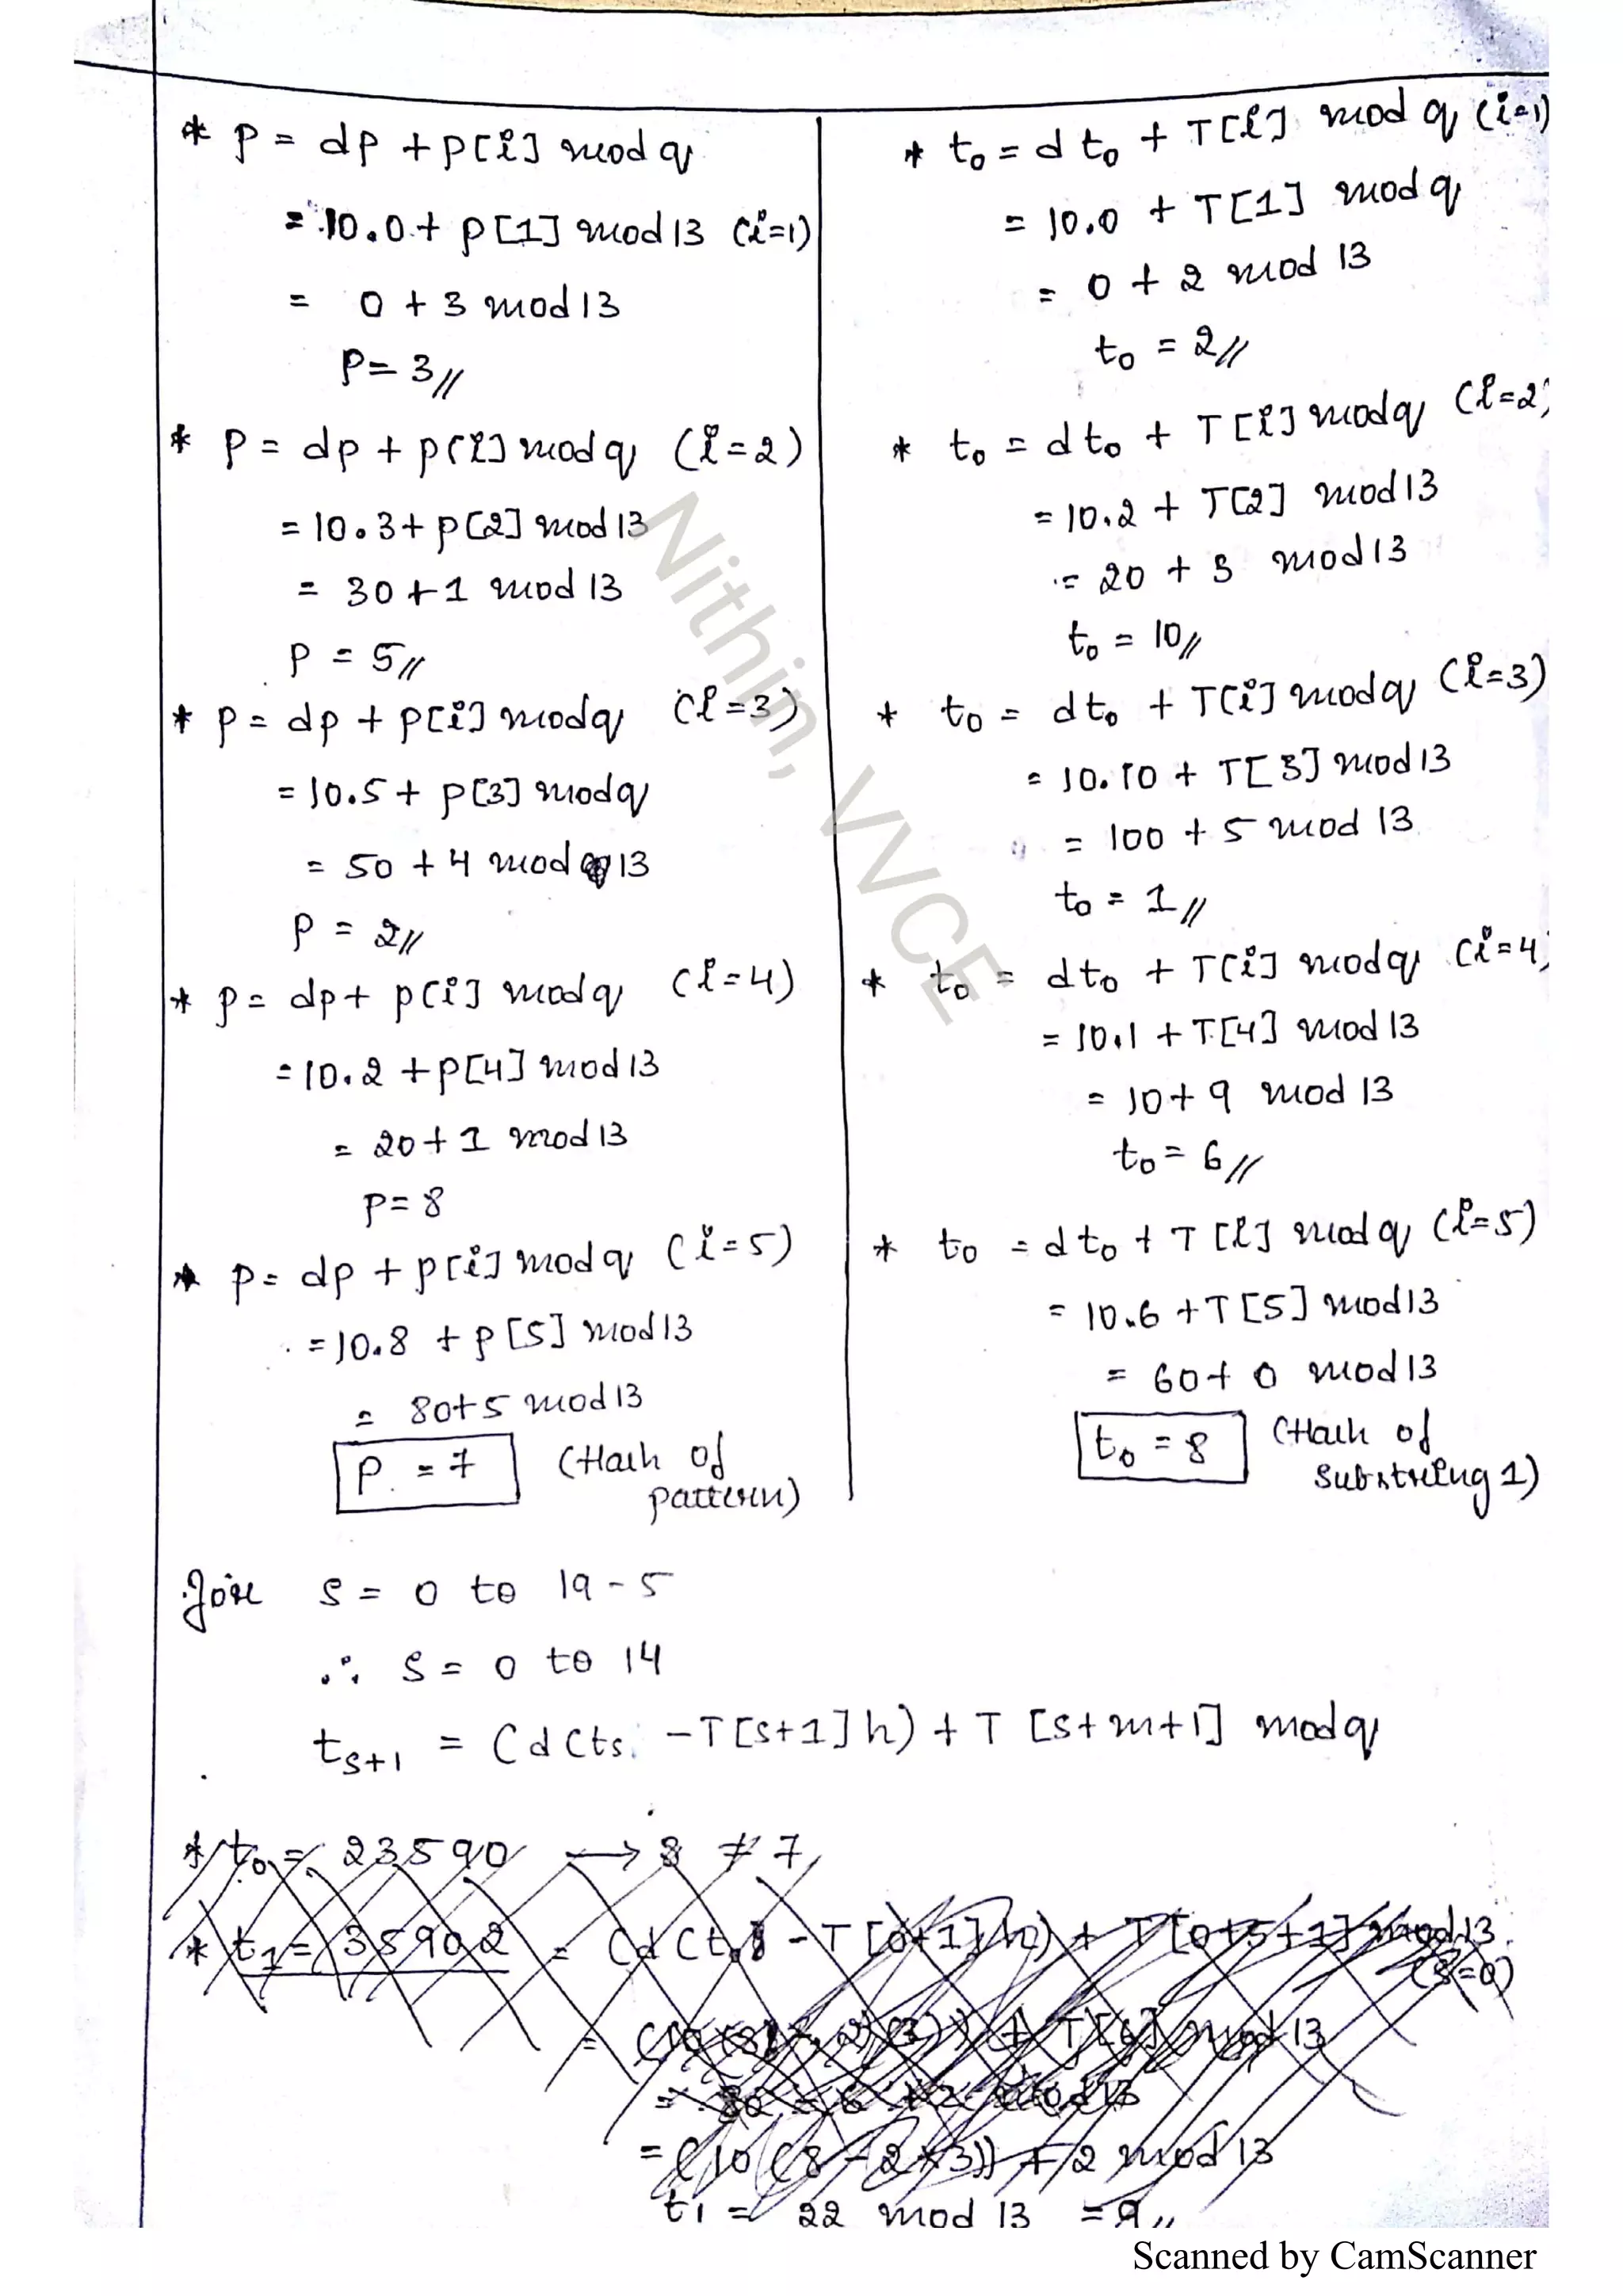 * P = dp + P[i] mod q
= 10.0 + P[1] mod 13 (i=1)
= 0 + 3 mod 13
P = 3//
* P = dp + P[i] mod q (i=2)
= 10.3 + P[2] mod 13
= 30+1 mod 13
P = 5//
* P = dp + P[i] mod q (i=3)
= 10.5 + P[3] mod q
= 50 + 4 mod 13
P = 2//
* P = dp + P[i] mod q (i=4)
= 10.2 + P[4] mod 13
= 20+1 mod 13
P = 8
* P = dp + P[i] mod q (i=5)
= 10.8 + P[5] mod 13
= 80+5 mod 13
P = 7 (Hash of
pattern)
* t₀ = d t₀ + T[i] mod q (i=1)
= 10.0 + T[1] mod q
= 0 + 2 mod 13
t₀ = 2//
* t₀ = d t₀ + T[i] mod q (i=2)
= 10.2 + T[2] mod 13
= 20 + 3 mod 13
t₀ = 10//
* t₀ = d t₀ + T[i] mod q (i=3)
= 10.10 + T[3] mod 13
= 100 + 5 mod 13
t₀ = 1//
* t₀ = d t₀ + T[i] mod q (i=4)
= 10.1 + T[4] mod 13
= 10+9 mod 13
t₀ = 6//
* t₀ = d t₀ + T[i] mod q (i=5)
= 10.6 + T[5] mod 13
= 60+0 mod 13
t₀ = 8 (Hash of
substring 1)
for S = 0 to 19-5
∴ S = 0 to 14
tₛ₊₁ = (d(tₛ - T[s+1]h) + T[s+m+1] mod q
* t₀ = 23590 → 8 ≠ 7
* t₁ = 35902 = (d(t₀ - T[0+1]h) + T[0+5+1] mod 13
(s=0)
+ T[6] mod 13
= (10(8-2*3)) + 2 mod 13
t₁ = 22 mod 13 = 9//
Nithin, VVCE
Scanned by CamScanner